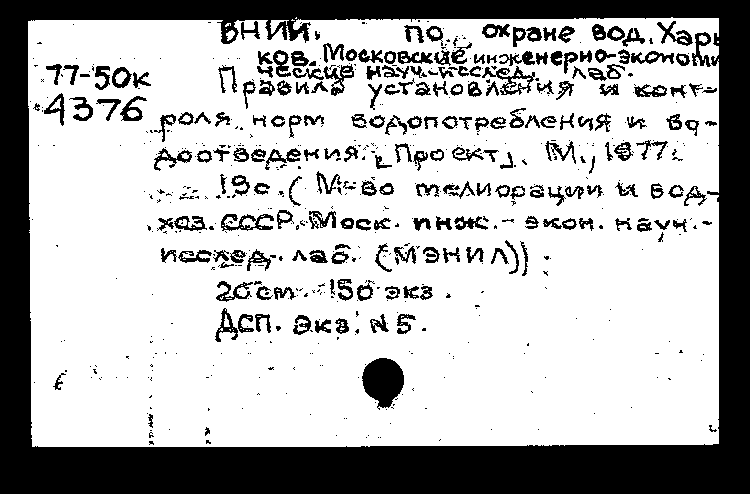 ВНИИ. по охране вод. Харь
ков. Московские инженерно-экономи
ческие науч.-исслед. лаб.
77-50к
4376
Правила установления и конт-
роля норм водопотребления и во-
доотведения. [Проект]. М., 1977.
19с. (М-во мелиорации и вод.
хоз. СССР. Моск. инж.- экон. науч.-
исслед. лаб. (МЭНИЛ)).
20см. 150 экз.
ДСП. Экз. N 5.